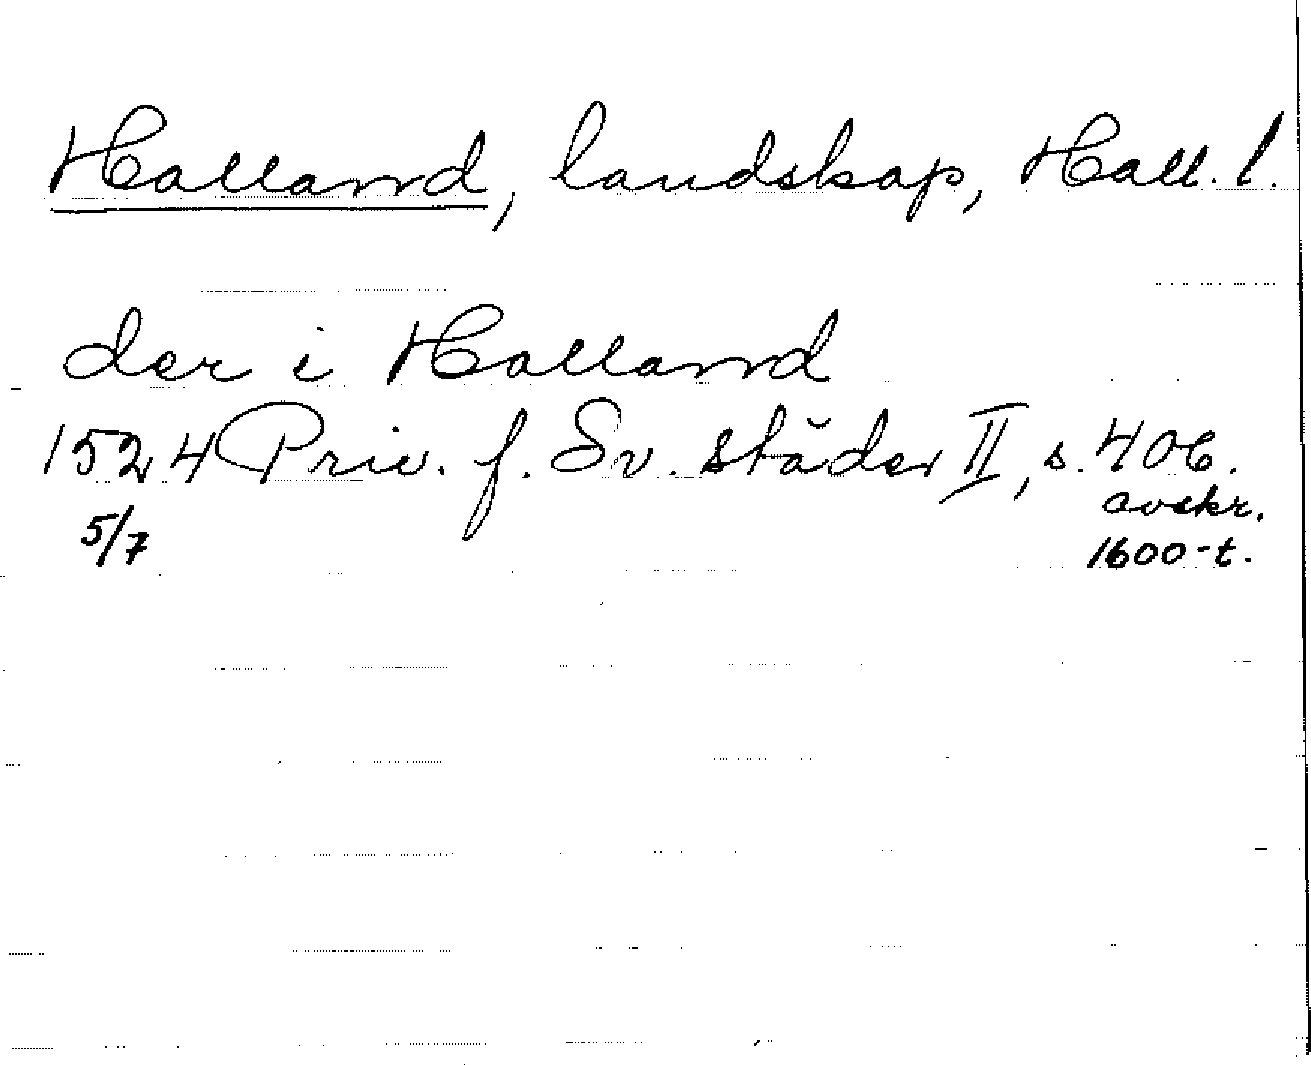 Halland, landskap, Hall. l.
der i Halland
1524 Priv. f. Sv. städer II, s. 406.
5/7 avskr.
1600-t.